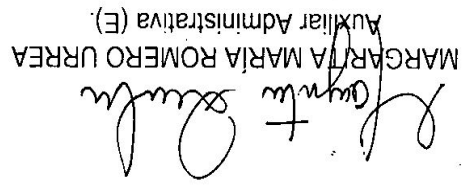 MARGARITA MARÍA ROMERO URREA
Auxiliar Administrativa (E).